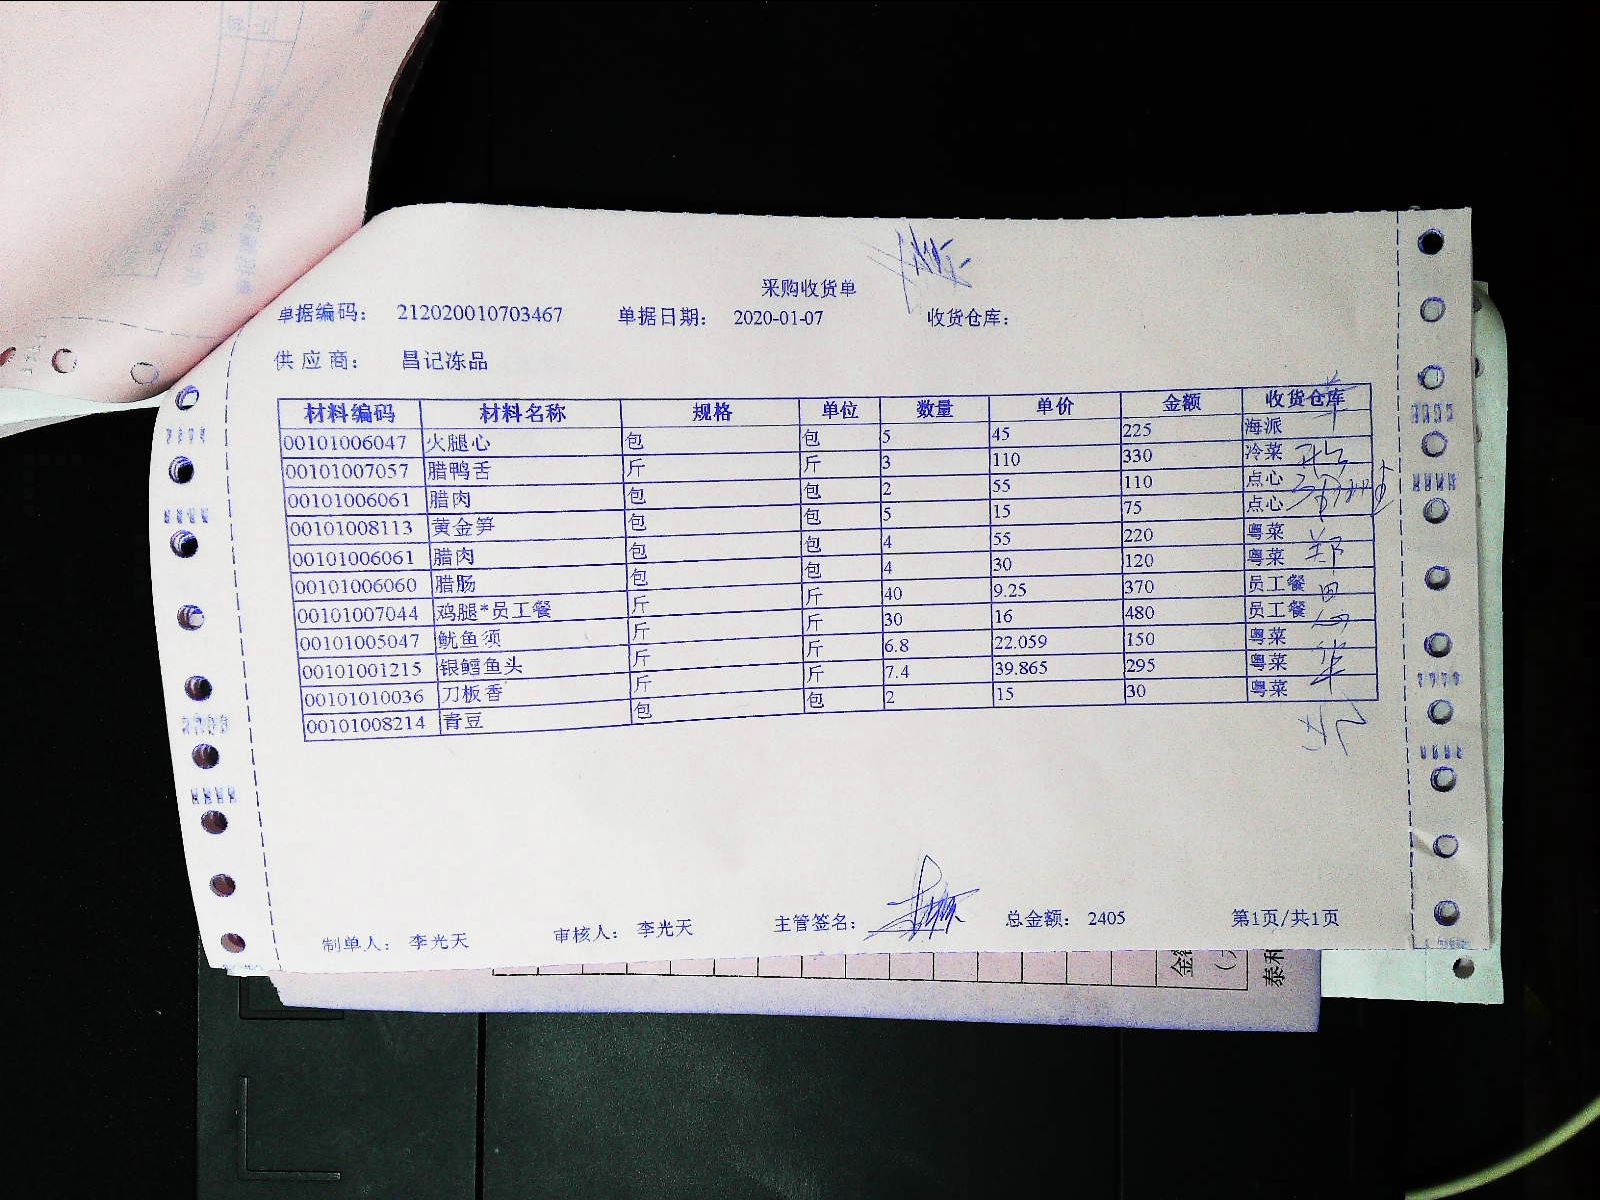 采购收货单
单据编码： 212020010703467 单据日期： 2020-01-07 收货仓库：
供应商： 昌记冻品
材料编码 材料名称 规格 单位 数量 单价 金额 收货仓库
00101006047 火腿心 包 包 5 45 225 海派
00101007057 腊鸭舌 斤 斤 3 110 330 冷菜
00101006061 腊肉 包 包 2 55 110 点心
00101008113 黄金笋 包 包 5 15 75 点心
00101006061 腊肉 包 包 4 55 220 粤菜
00101006060 腊肠 包 包 4 30 120 粤菜
00101007044 鸡腿*员工餐 斤 斤 40 9.25 370 员工餐
00101005047 鱿鱼须 斤 斤 30 16 480 员工餐
00101001215 银鳕鱼头 斤 斤 6.8 22.059 150 粤菜
00101010036 刀板香 斤 斤 7.4 39.865 295 粤菜
00101008214 青豆 包 包 2 15 30 粤菜
制单人： 李光天 审核人： 李光天 主管签名： 总金额： 2405 第1页/共1页
金
泰和